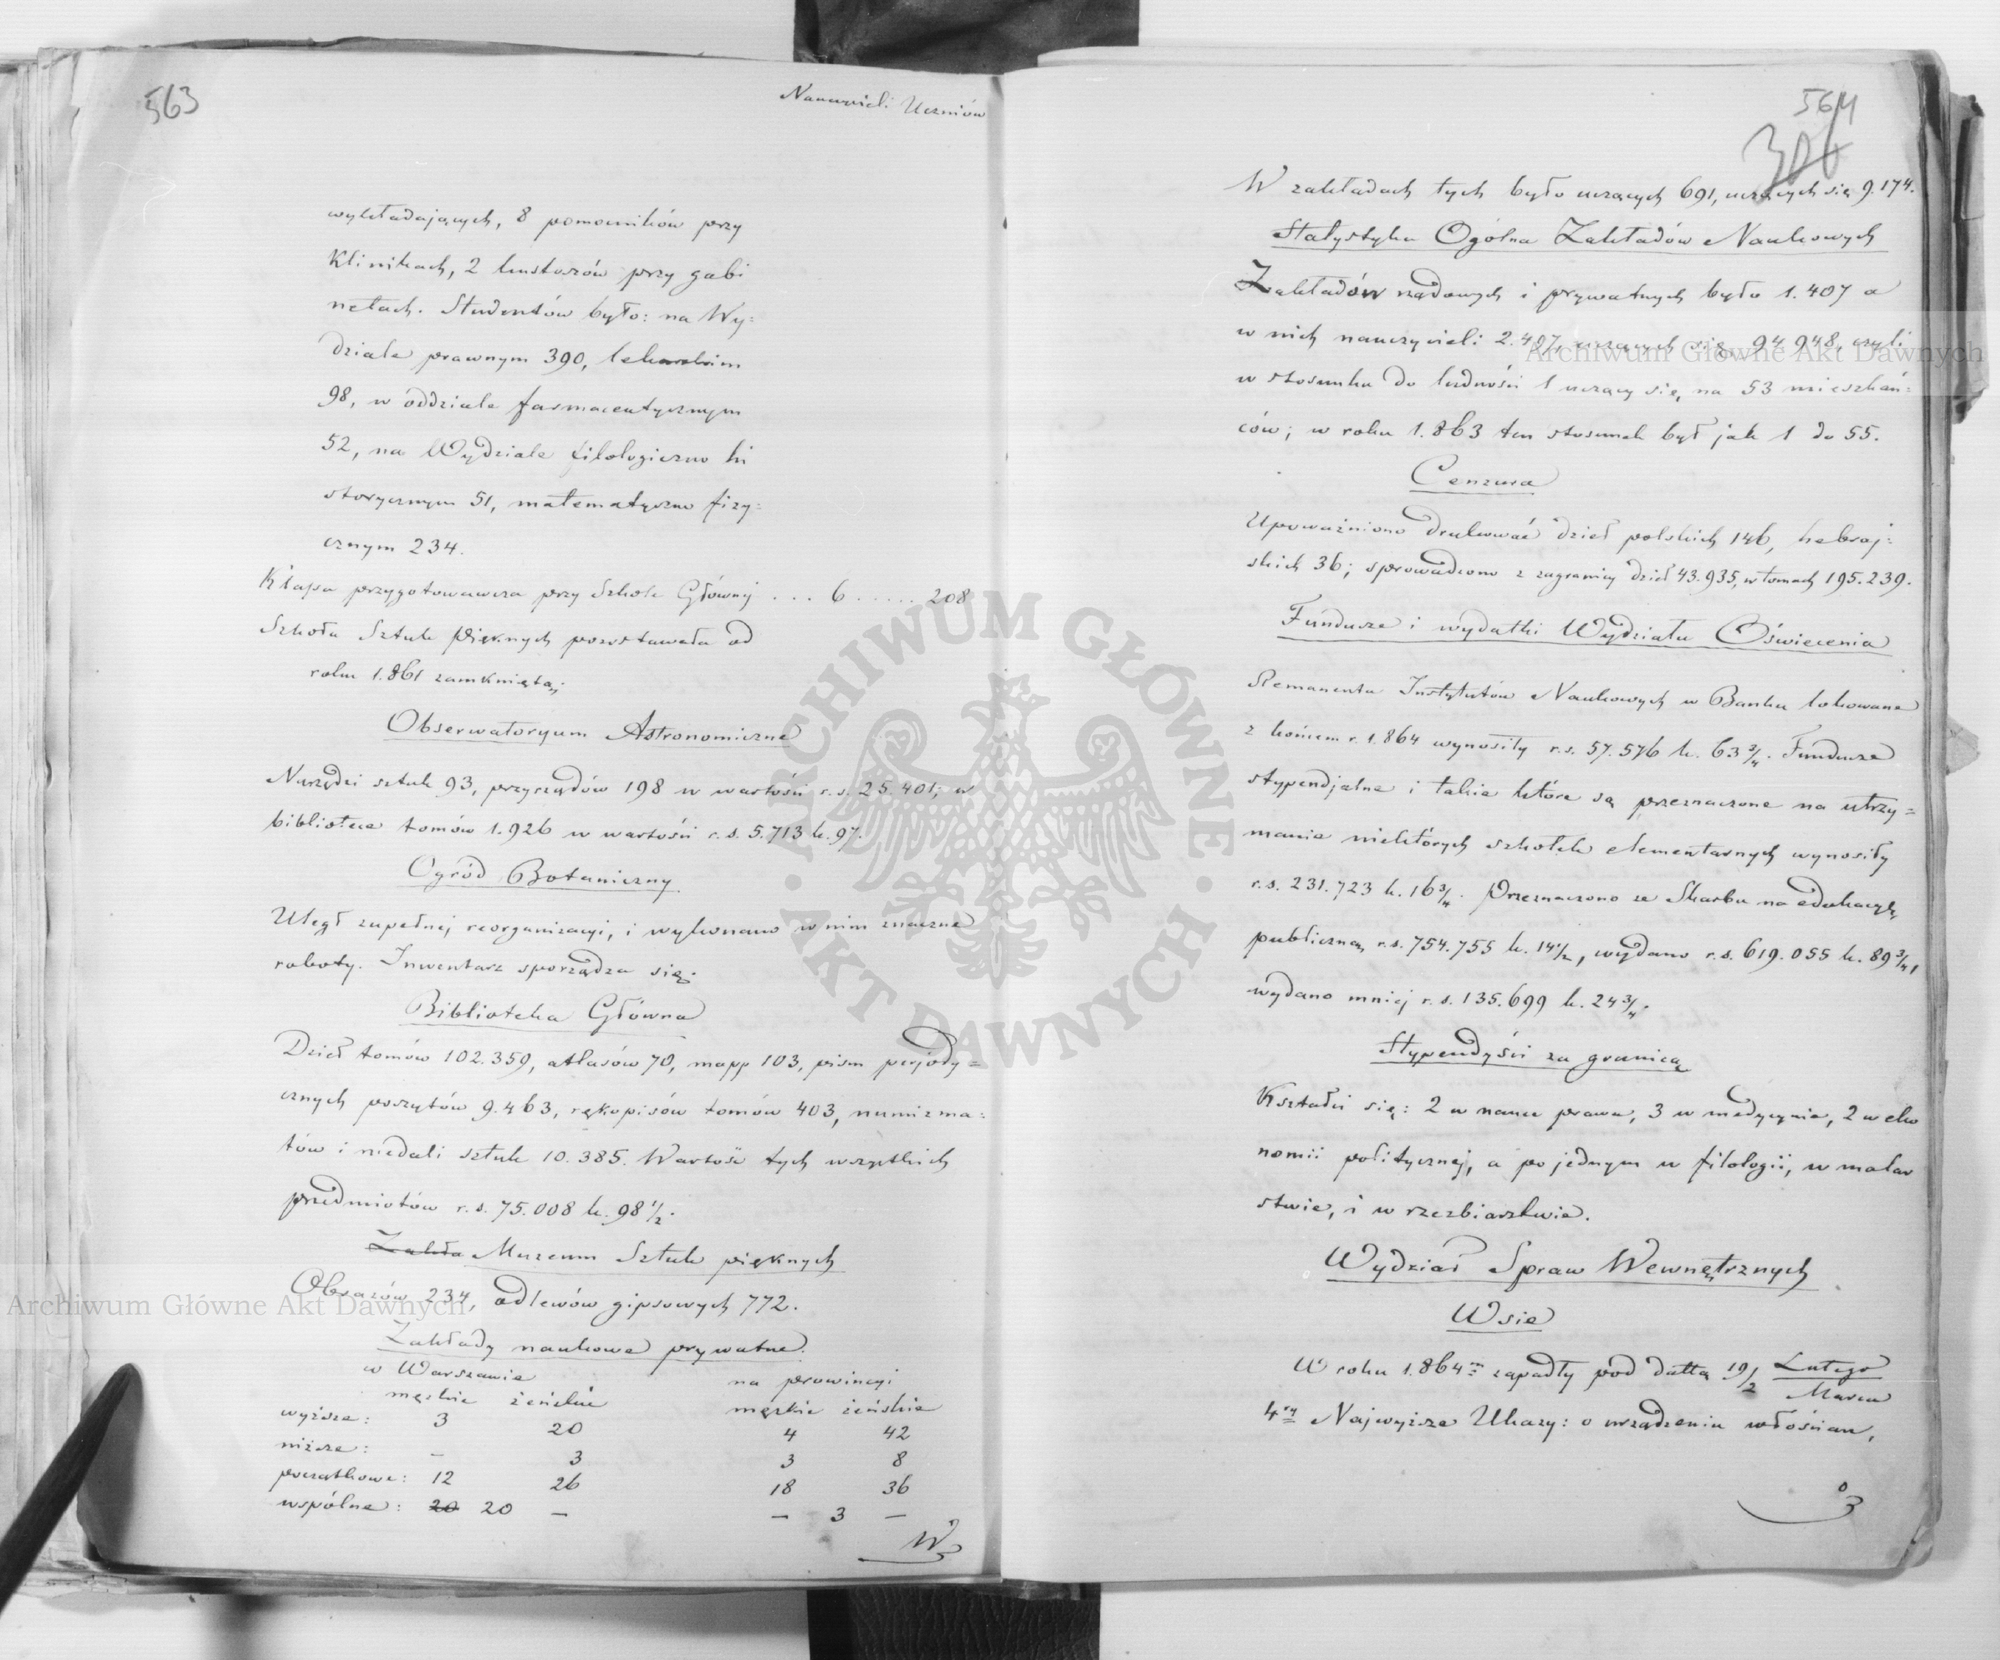 563
Nauczycieli Uczniów
wykładających, 8 pomocników przy
Klinikach, 2 kustoszów przy gabi
netach. Studentów było: na Wy=
dziale prawnym 390, lekarskim
98, w oddziale farmaceutycznym
52, na Wydziale filologiczno hi
storycznym 51, matematyczno fizy=
cznym 234.
Klasa przygotowawcza przy Szkole Głównej ... 6 ..... 208
Szkoła Sztuk Pięknych pozostawała od
roku 1.861 zamkniętą
Obserwatoryum Astronomiczne
Narzędzi sztuk 93, przyrządów 198 w wartości r.s. 25.401; w
bibliotece tomów 1.926 w wartości r.s. 5.713 k. 97.
Ogród Botaniczny
Uległ zupełnej reorganizacyi, i wykonano w nim znaczne
roboty. Inwentarz sporządza się.
Biblioteka Główna
Dzieł tomów 102.359, atlasów 70, mapp 103, pism perjody=
cznych poszytów 9.463, rękopisów tomów 403, numizma=
tów i medali sztuk 10.385. Wartość tych wszystkich
przedmiotów r.s. 75.008 k. 98 1/2.
Zakła Muzeum Sztuk pięknych
Obrazów 234, odlewów gipsowych 772.
Zakłady naukowe prywatne.
w Warszawie na prowincyi
męzkie żeńskie męzkie żeńskie
wyższe: 3 20 4 42
niższe: — 3 3 8
początkowe: 12 26 18 36
wspólne: 20 20 — — 3 —
W
564
306
W zakładach tych było uczących 691, uczących się 9.174.
Statystyka Ogólna Zakładów Naukowych
Zakładów rządowych i prywatnych było 1.407 a
w nich nauczycieli 2.407, uczących się 94.948, czyli
w stosunku do ludności 1 uczący się, na 53 mieszkań=
ców; w roku 1.863 ten stosunek był jak 1 do 55.
Cenzura
Upoważniono drukować dzieł polskich 146, hebraj=
skich 36; sprowadzono z zagranicy dzieł 43.935, w tomach 195.239.
Fundusze i wydatki Wydziału Oświecenia
Remanenta Instytutów Naukowych w Banku lokowane
z końcem r. 1.864 wynosiły r.s. 57.576 k. 63 3/4. Fundusze
stypendjalne i takie które są przeznaczone na utrzy=
manie niektórych szkółek elementarnych wynosiły
r.s. 231.723 k. 16 3/4. Przeznaczono ze Skarbu na edukacyę
publiczną r.s. 754.755 k. 14 1/2, wydano r.s. 619.055 k. 89 3/4,
wydano mniej r.s. 135.699 k. 24 3/4.
Stypendyści za granicą
Kształci się: 2 w nauce prawa, 3 w medycynie, 2 w eko
nomii politycznej, a po jednym w filologii, w malar
stwie, i w rzezbiarstwie.
Wydział Spraw Wewnętrznych
Wsie
W roku 1.864m zapadły pod dattą 19/2 Lutego
Marca
4ry Najwyższe Ukazy: o urządzeniu włościan,
o
Archiwum Główne Akt Dawnych
Archiwum Główne Akt Dawnych
ARCHIWUM GŁÓWNE
AKT DAWNYCH